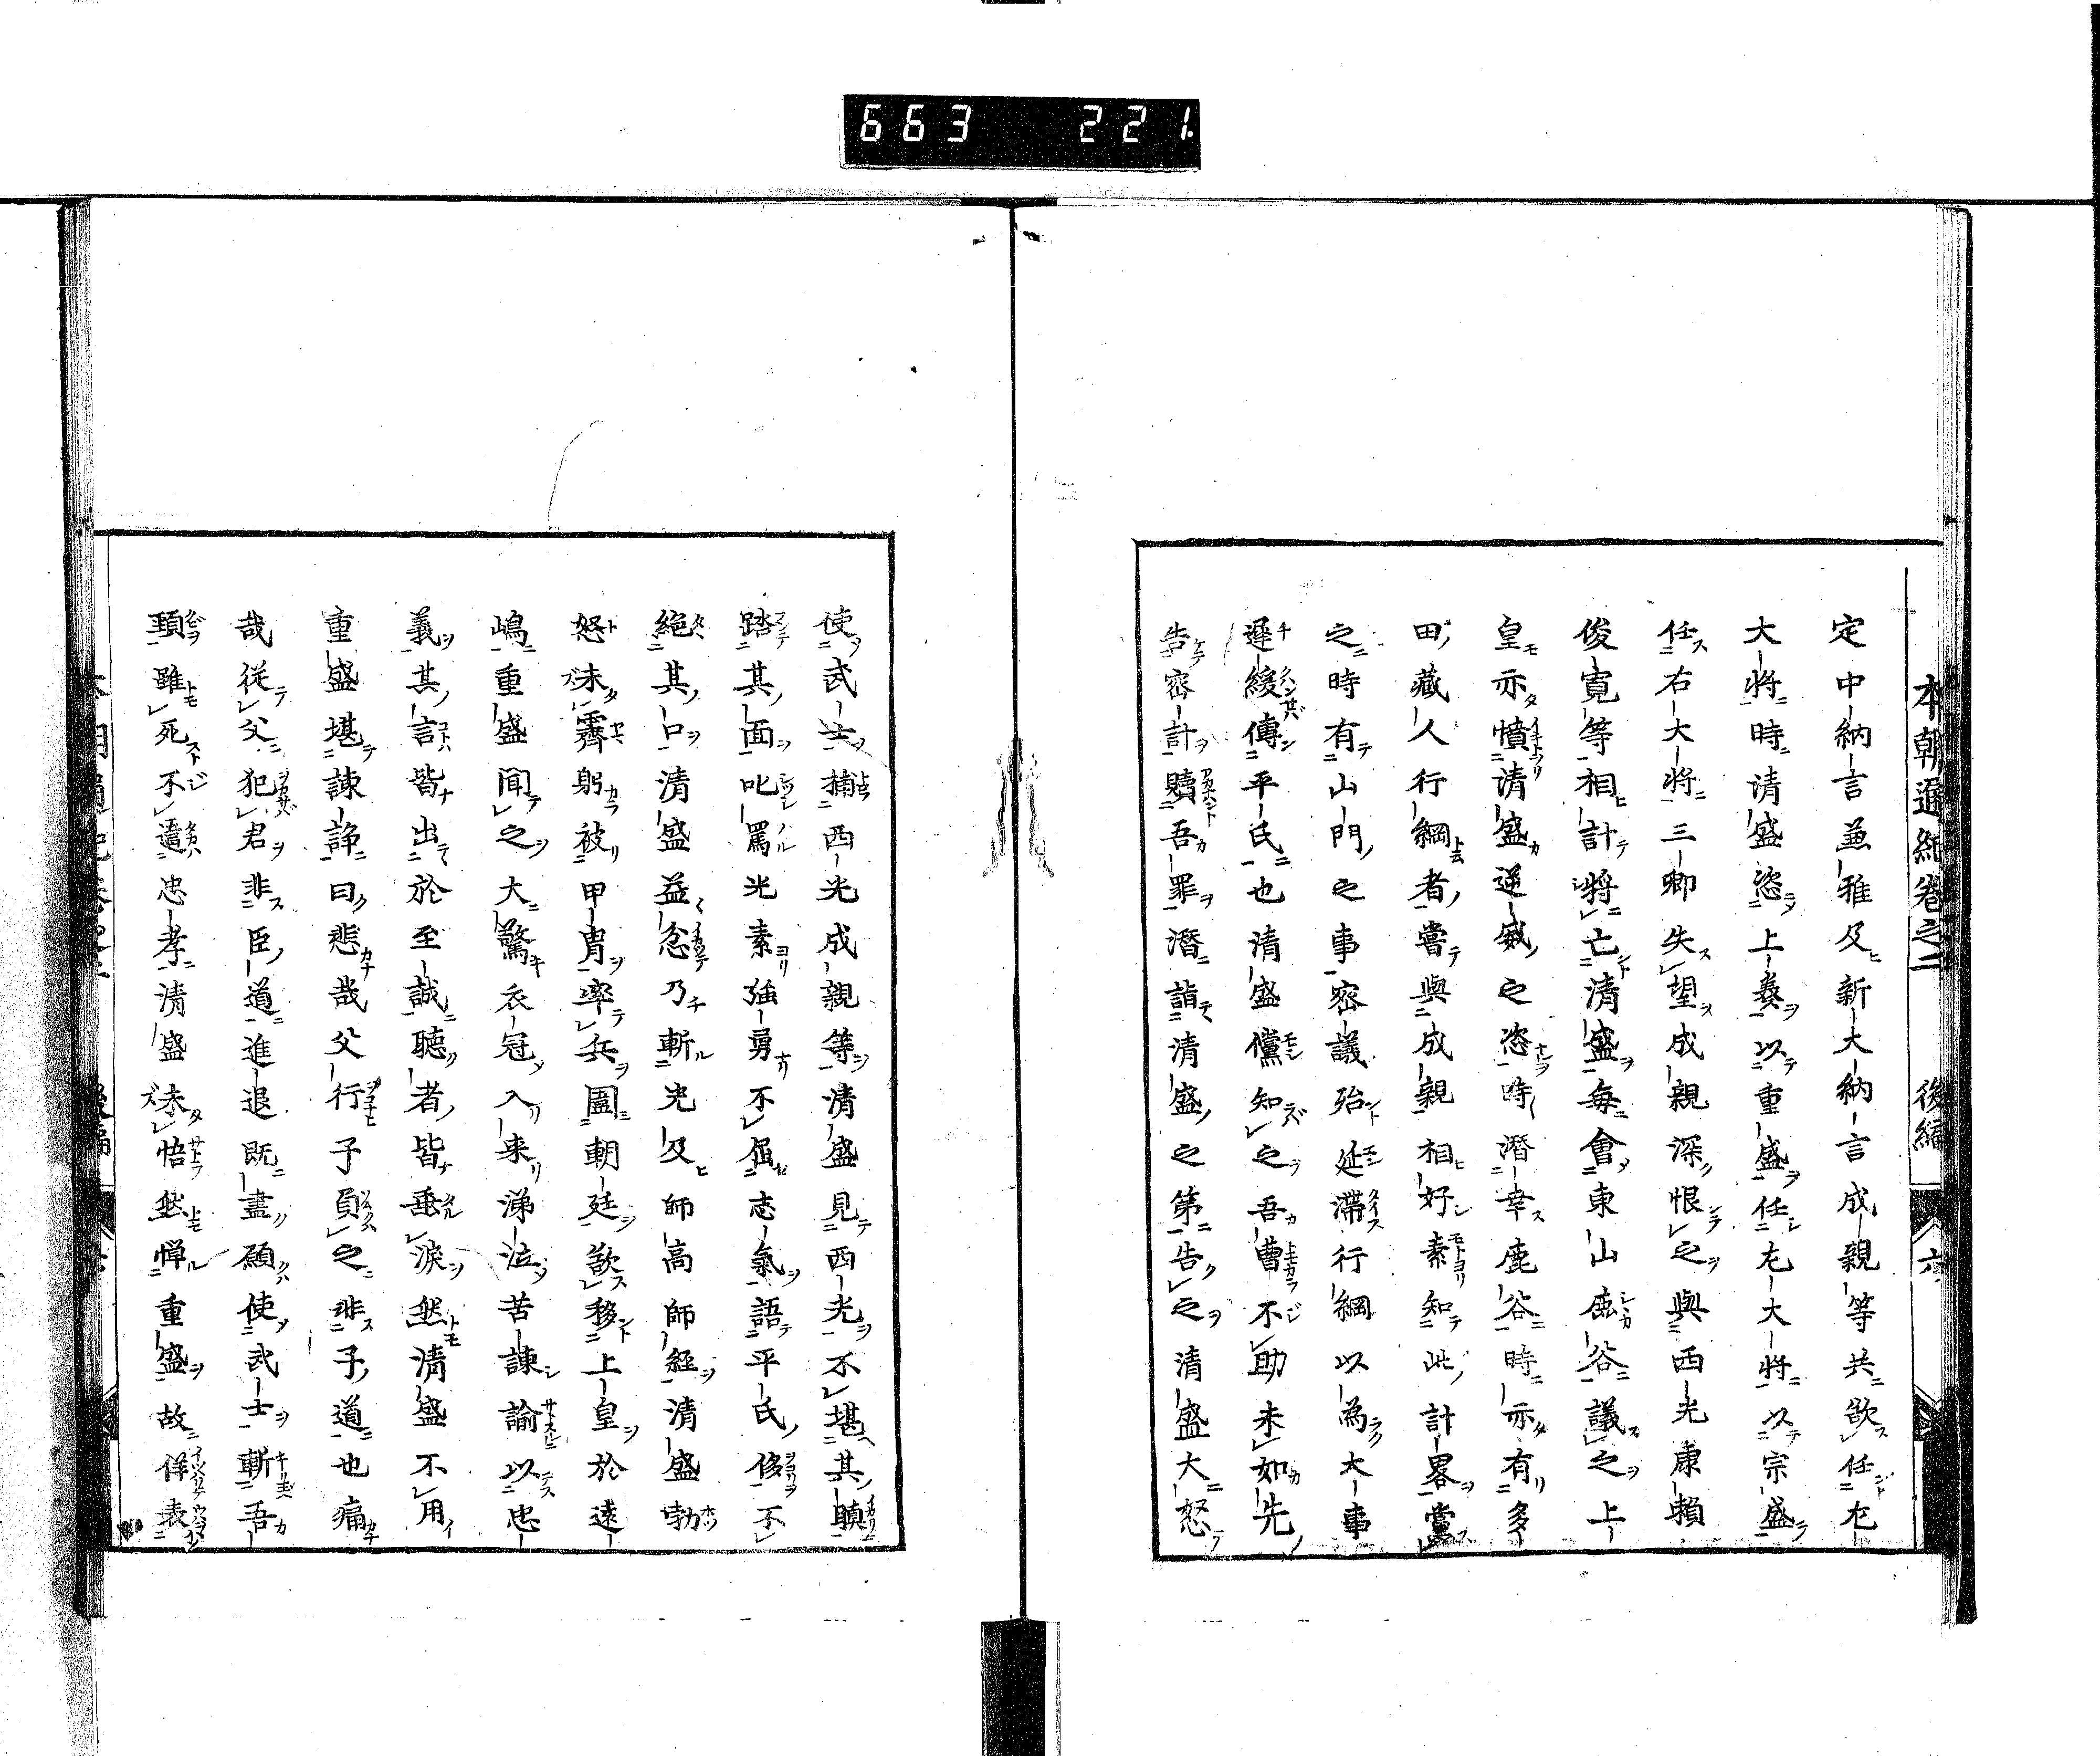 663 221.
本朝通紀卷之二 後編 六
定中納言兼雅及新大納言成親等共欲任左
大將時清盛恣上奏以重盛任左大將以宗盛
任右大將三卿失望成親深恨之與西光康賴
俊寬等相計將亡清盛每會東山鹿谷議之上
皇亦憤清盛逆威之恣時潛幸鹿谷時亦有多
田藏人行綱者嘗與成親相好素知此計畧黨
之時有山門之事密議殆延滯行綱以為大事
遲緩傳平氏也清盛儻知之吾曹不助未如先
告密計贖吾罪潛詣清盛之第告之清盛大怒
使武士捕西光成親等清盛見西光不堪其瞋
踏其面叱罵光素強勇不屈志氣語平氏侈不
絕其口清盛益忿乃斬光及師高師經清盛勃
怒未霽躬被甲冑率兵圍朝廷欲移上皇於遠
嶋重盛聞之大驚衣冠入來涕泣苦諫諭以忠
義其言皆出於至誠聽者皆垂淚然清盛不用
重盛堪諫諍曰悲哉父行子負之非子道也痛
哉從父犯君非臣道進退既盡願使武士斬吾
頸雖死不遣忠孝清盛未悟然憚重盛故佯表